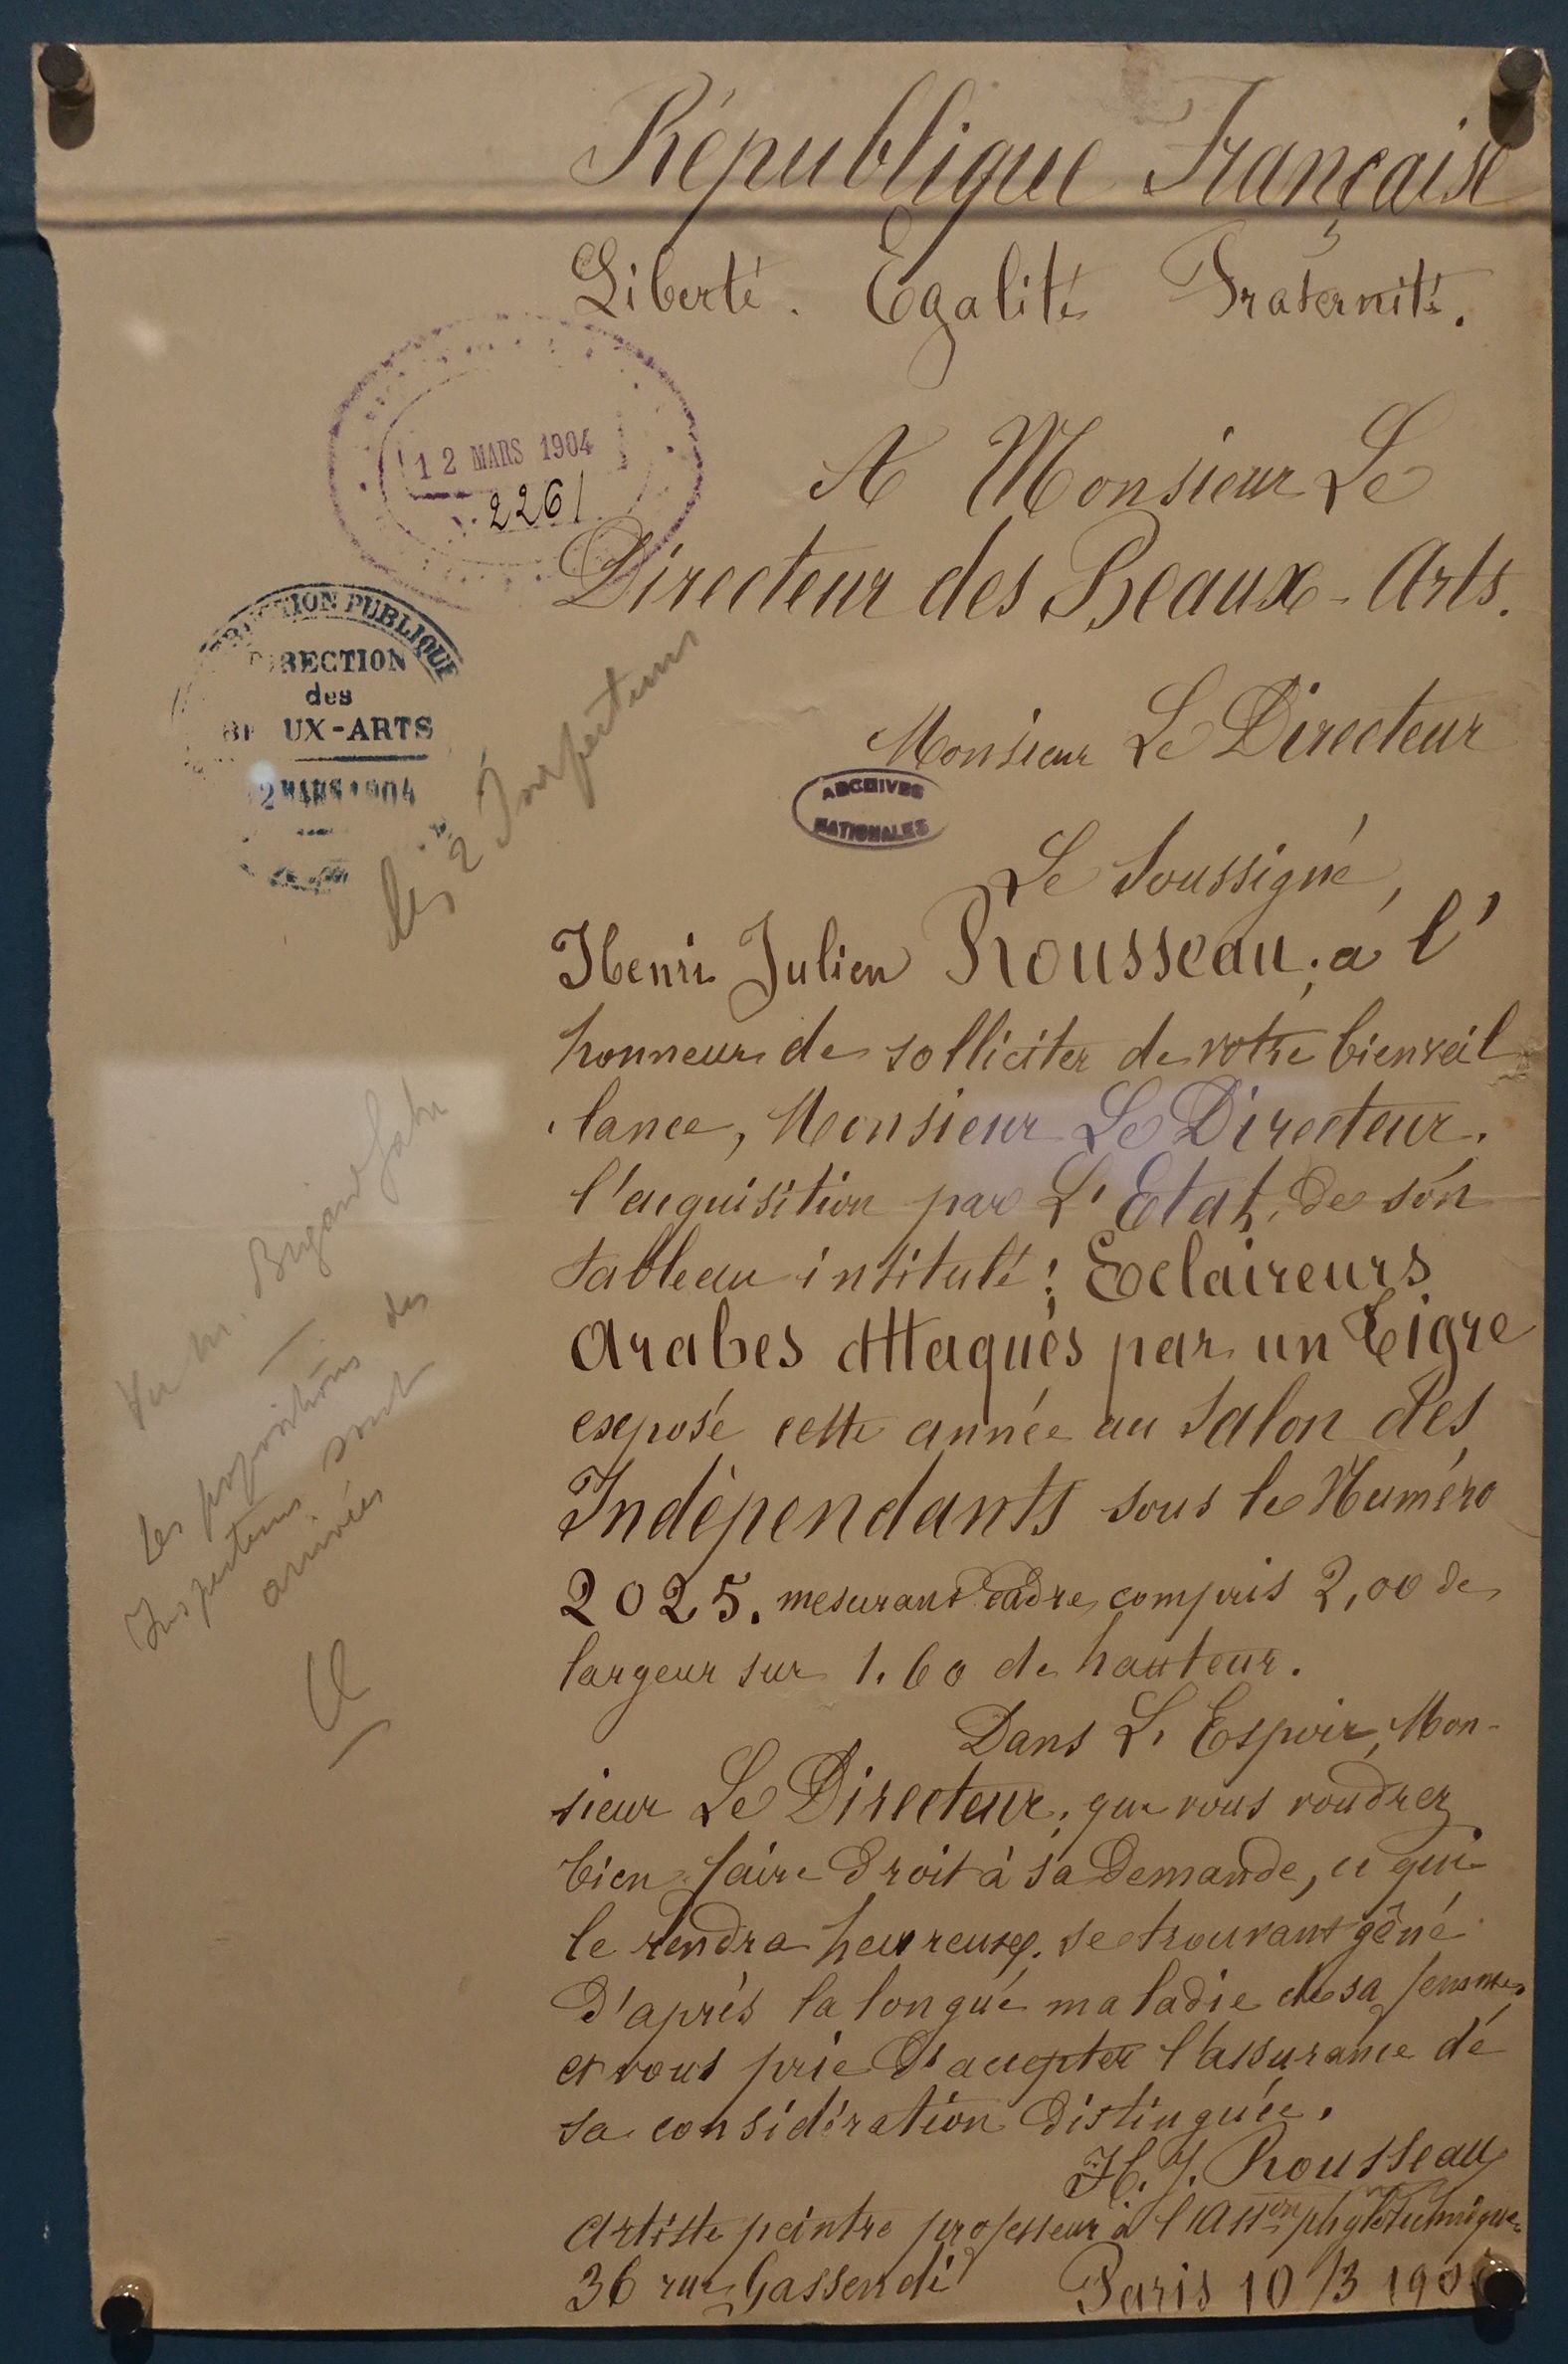 République Française
Liberté. Egalité Fraternité.
12 MARS 1904
2261
A Monsieur Le
Directeur des Beaux-Arts.
CTION PUBLIQUE
DIRECTION
des
BEAUX-ARTS
2 MARS 1904
les 2 Inspecteurs
Monsieur Le Directeur
ARCHIVES
NATIONALES
Le Soussigné,
Henri Julien Rousseau, a l'
honneur de solliciter de votre bienveil
lance, Monsieur Le Directeur,
l'acquisition par L'Etat, de son
tableau intitulé: Eclaireurs
Arabes Attaqués par un Tigre
exposé cette année au Salon des
Indépendants sous le Numéro
2025. mesurant cadre compris 2,00 de
largeur sur 1.60 de hauteur.
Vu M.
Les propositions des
Inspecteurs sont
arrivées
Dans L'Espoir, Mon-
sieur Le Directeur, que vous voudrez
bien faire droit à sa demande, ce qui
le rendra heureux, se trouvant gêné
d'après la longue maladie de sa femme,
et vous prie d'accepter l'assurance de
sa considération distinguée.
H. J. Rousseau
Artiste peintre professeur à l'Asson phylotechnique
36 rue Gassendi Paris 10/3 190